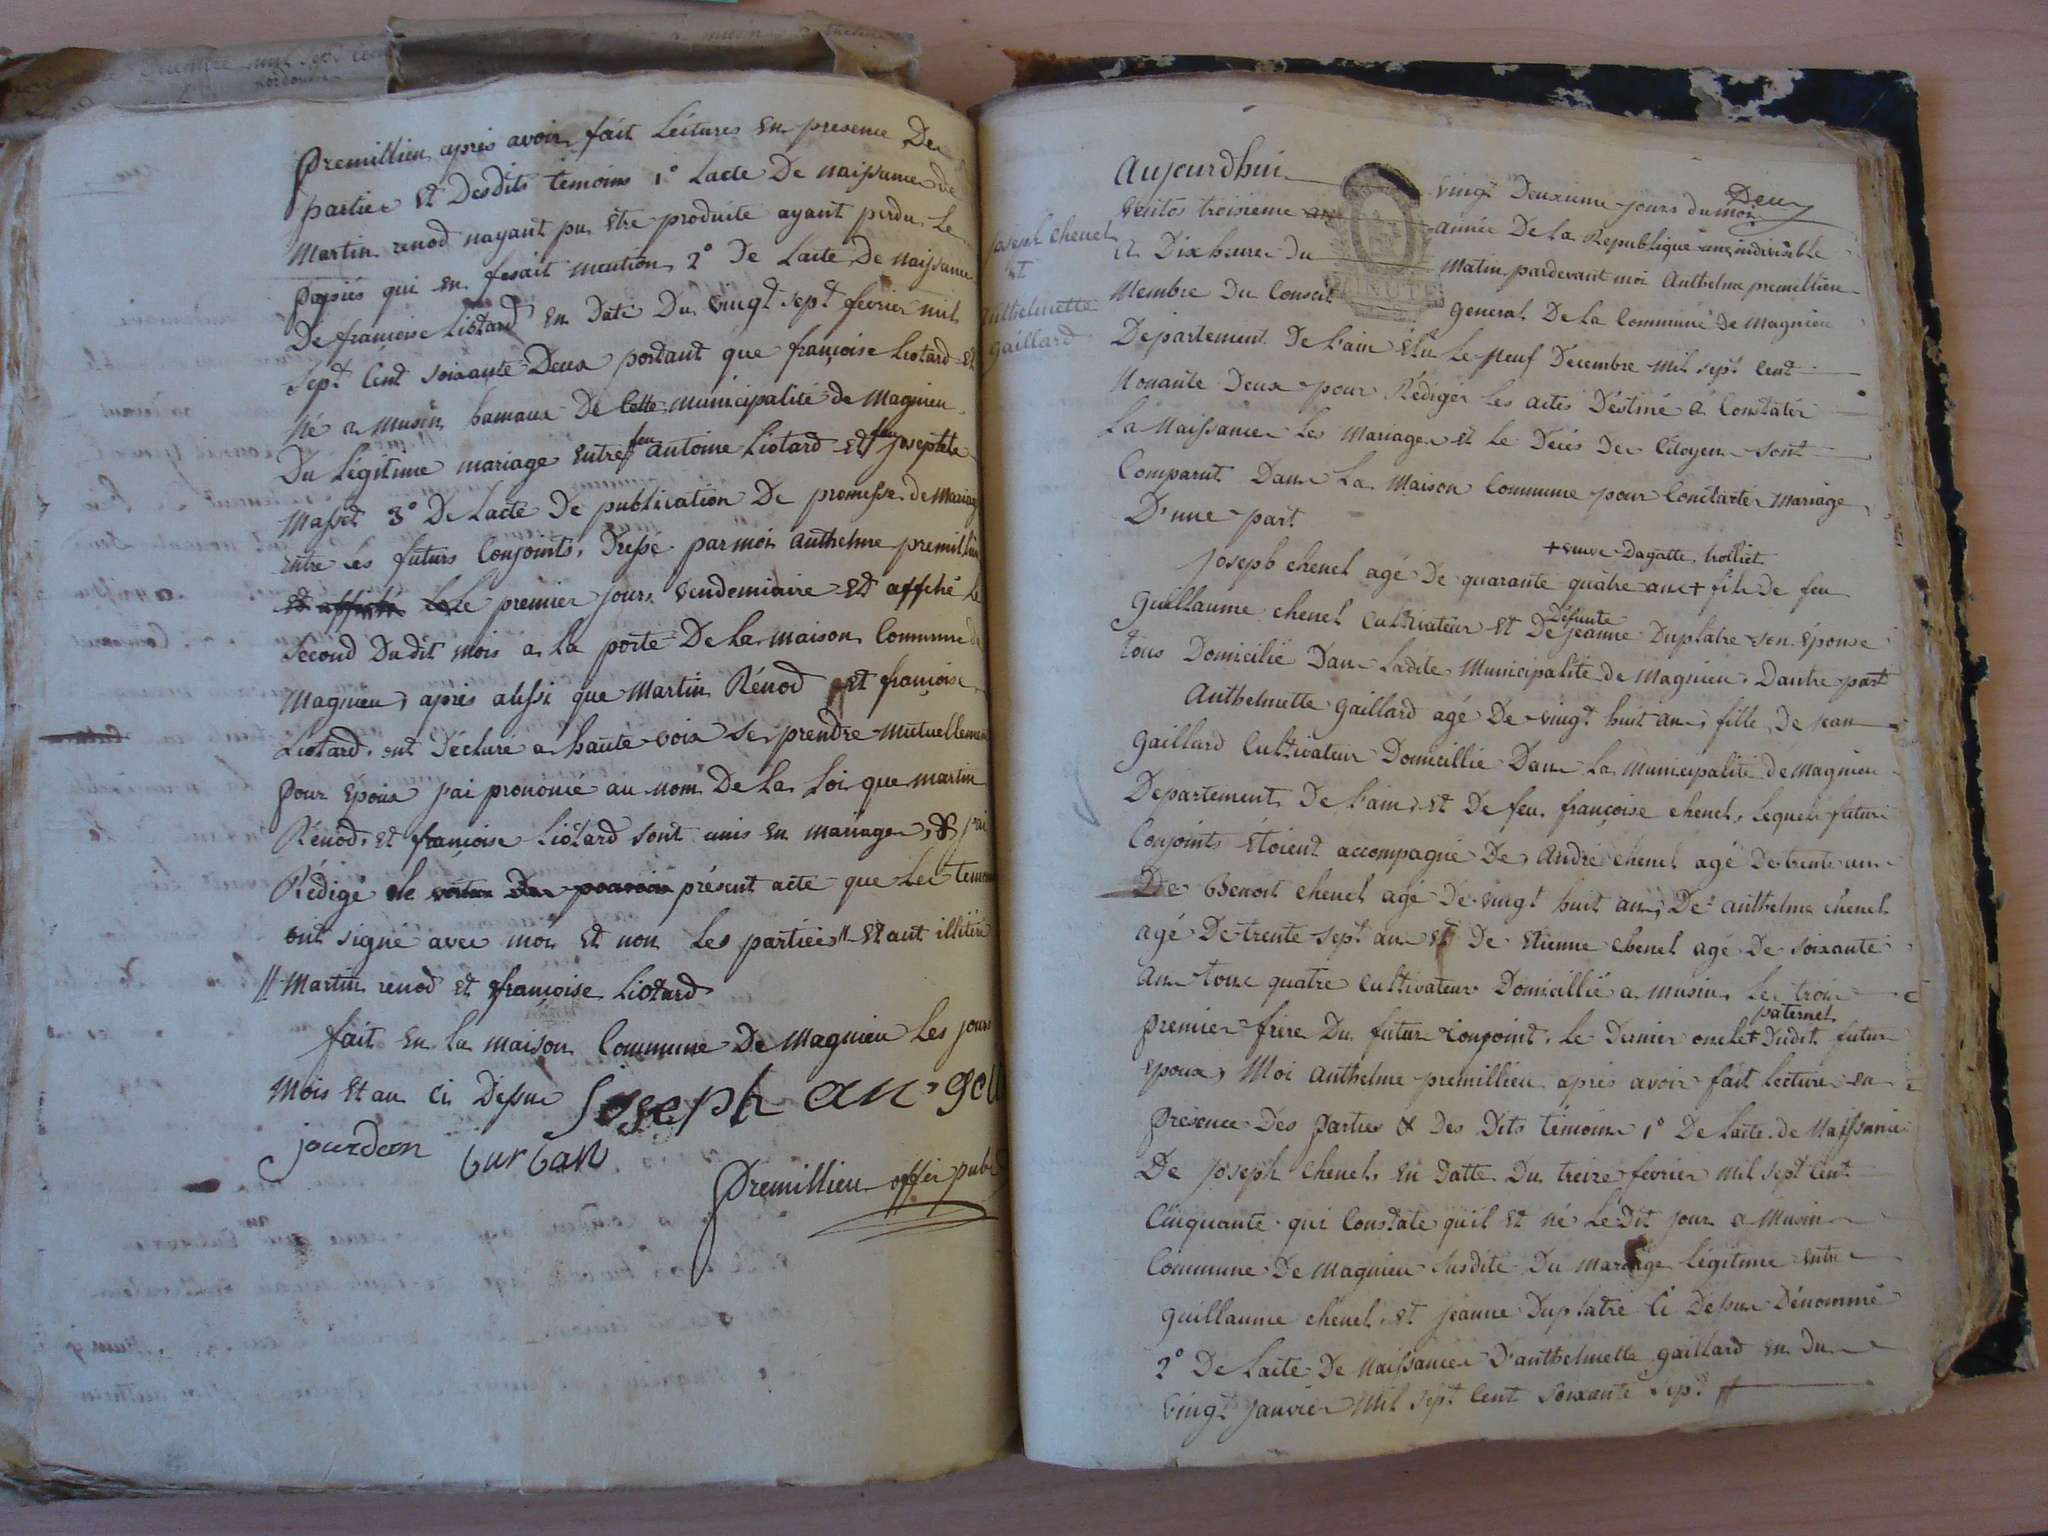 premillieu après avoir fait Leitures en presence De
partier et Desdits temoins 1° Lacte De naissance de
Martin renod nayant pu être produite ayant perdu Le
papiés qui en fesait mention 2° De Lacte De naissance
De françoise Liotard en Date Du vingt sept fevrier mil
sept Cent soixante Deux portant que françoise Liotard et
Né a musin hamaux De Cette municipalité de Magnieu
Du Légitime mariage entre feu antoine Liotard et feu josephte
Masset 3° De Lacte De publication De promesse de Mariage
entre Les futurs Conjoints, Dressé par moi anthelme premillieu
et affiché Le premier jours vendemiaire et affiché Le
second Dudit mois a La porte De La maison Commune de
Magnieu, après aussi que Martin Rénod et françoise
Liotard ont Déclaré a haute voix se prendre mutuellement
pour époux j'ai prononcé au nom De La Loi que martin
Rénod et françoise Liotard sont unis en mariage, & j'ai
Rédigé le présent acte que Les temoins
ont signé avec moi et non Les parties // étant illitéré
// Martin renod et françoise Liotard
fait en La maison Commune De Magnieu Les jours
Mois et an Ci Dessus joseph
jourdan burban
premillieu offi publ
joseph chenel
et
anthelmette
gaillard
Aujourdhui vingt Deuxieme jours du mois
ventos troisieme année De La Republique une indivisible
a Dix heures du Matin pardevant moi Anthelme premillieu
Membre Du Conseil General De La Commune De Magnieu
MINUTE
Departement De L'ain élu Le Neuf Decembre Mil sept Cent
Nonante Deux pour Rédiger Les actes Déstiné a Constater
La Naissance Les Mariages et Le Décès Des Citoyens sont
Comparut Dans La Maison Commune pour Constarter Mariage
D'une part
+ veuve Dagatte trolliet
joseph chenel agé De quarante quatre ans + fils De feu
Guillaume chenel Cultivateur et De Défunte jeanne Duplatre son épouse
tous Domicilié Dans Ladite Municipalité de Magnieu Dautre part
Anthelmette Gaillard agé De vingt huit ans, fille De jean
Gaillard Cultivateur Domicillié Dans La Municipalité de Magnieu
Departement De L'ain, et De feu françoise chenel, Lequels futur
Conjoints étoient accompagné De, André chenel agé De trente ans
De Benoit chenel agé De vingt huit ans, De anthelme chenel
agé De trente sept ans et De Etienne chenel agé De soixante
ans tous quatre Cultivateur Domicillié a Musin, Les trois
premier frère Du futur Conjoint, Le Dernier oncle + paternel Dudit futur
époux, Moi Anthelme premillieu après avoir fait Lecture en
presence Des parties & Des Dits témoins 1° De Lacte de Naissance
De joseph chenel, en Datte Du treize fevrier mil sept Cent
Cinquante qui Constate quil et né Le Dit jour a Musin
Commune De Magnieu susdite Du Mariage Légitime entre
guillaume chenel et jeanne Duplatre Ci Dessus Dénommé
2° De Lacte De Naissance D'anthelmette gaillard en Du
vingt janvier Mil sept Cent soixante sept